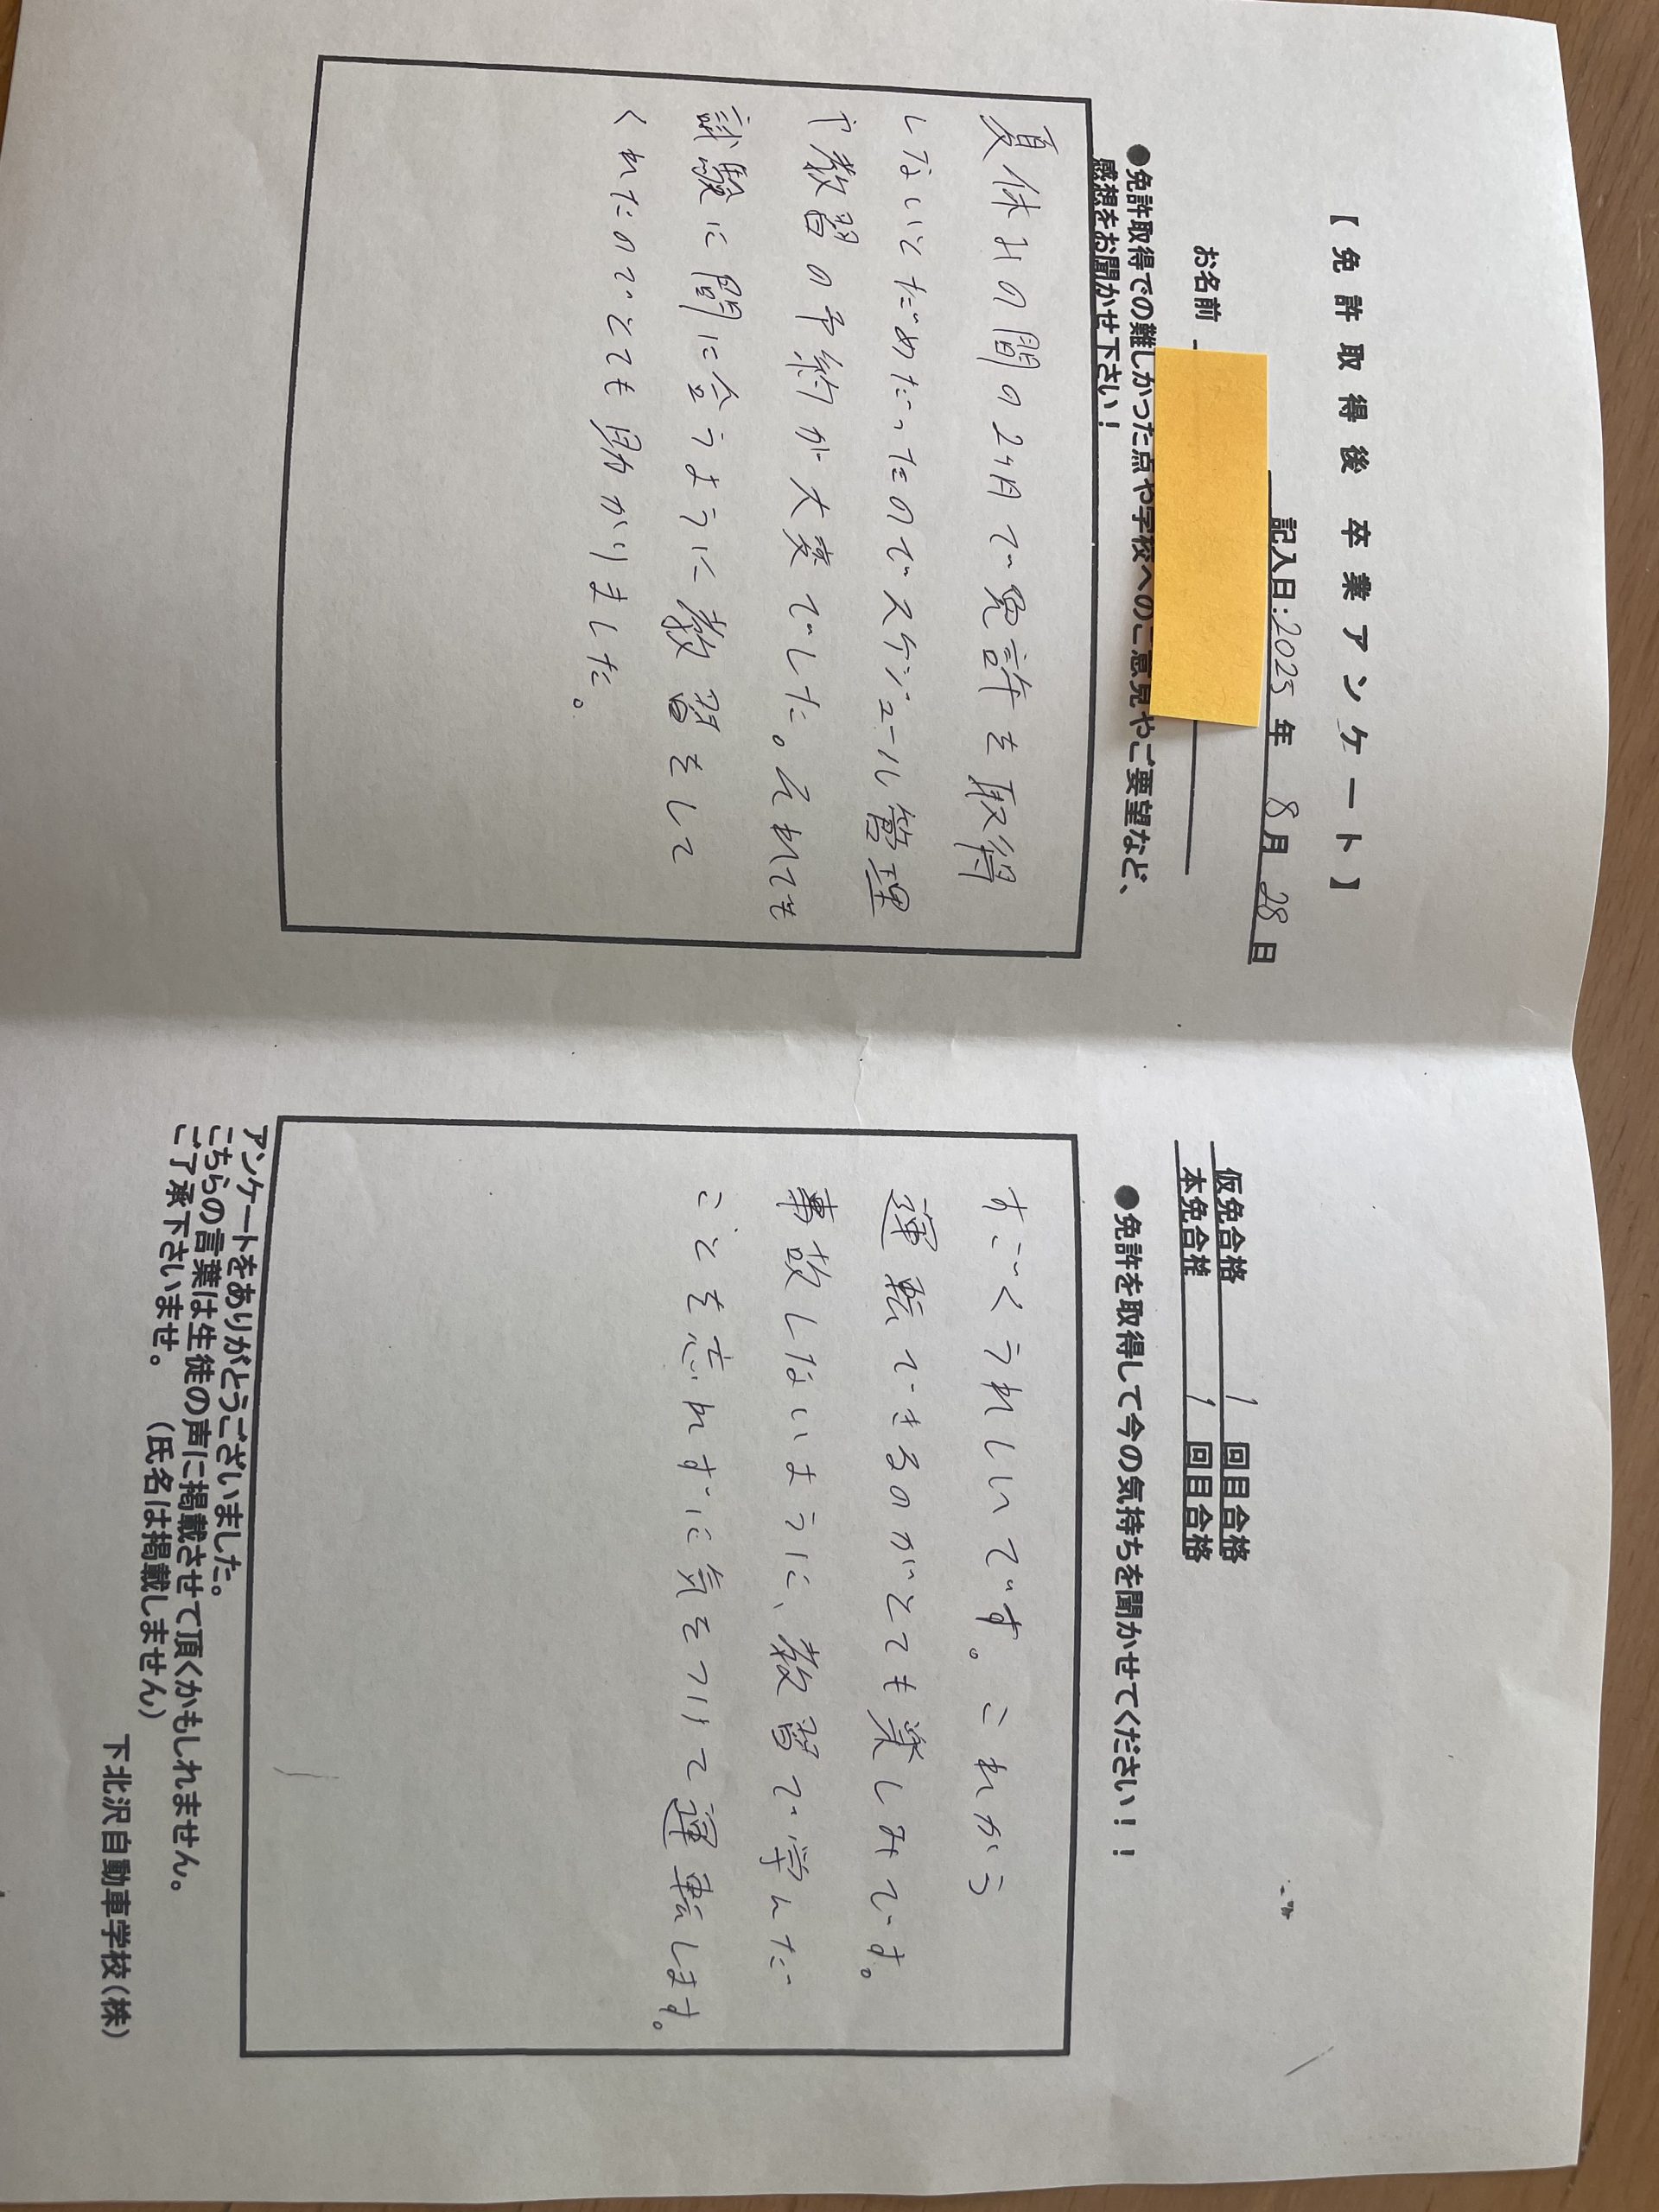 【免許取得後 卒業アンケート】
記入日:2025年 8月 28日
お名前
●免許取得での難しかった点や学校へのご意見やご要望など、
感想をお聞かせ下さい！
夏休みの間の2ヶ月で免許を取得
しないとだめだったのでスケジュール管理
や教習の予約が大変でした。それでも
試験に間に合うように教習をして
くれたのでとても助かりました。
仮免合格 1 回目合格
本免合格 1 回目合格
●免許を取得して今の気持ちを聞かせてください！！
すごくうれしいです。これから
運転できるのがとても楽しみです。
事故しないように、教習で学んだ
ことを忘れずに気をつけて運転します。
アンケートをありがとうございました。
こちらの言葉は生徒の声に掲載させて頂くかもしれません。
ご了承下さいませ。（氏名は掲載しません）
下北沢自動車学校（株）